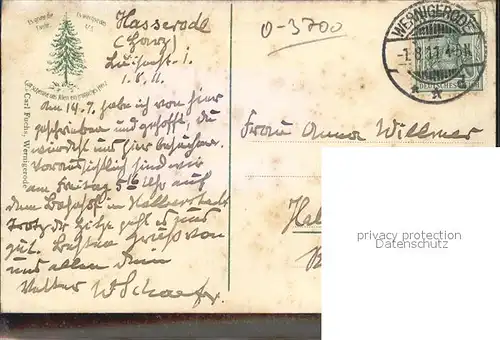 Es grüne die
Tanne,
Hasserode
(Harz)
1.8.11.
Am 14.7. habe ich von hier
geschrieben und gehofft, du
würdest uns hier besuchen.
Voraussichtlich sind wir
am Freitag 5 Uhr auf
dem Bahnhof in Halberstadt
Trotz der Hitze geht es uns
gut. Besten Gruß von
uns allen Dein
Walter W Schaefer.
Carl Fuchs, Wernigerode
0-3700
WERNIGERODE
1.8.11. 4-5N
DEUTSCHES
Frau Anna Willmer
Hal
privacy protection
Datenschutz